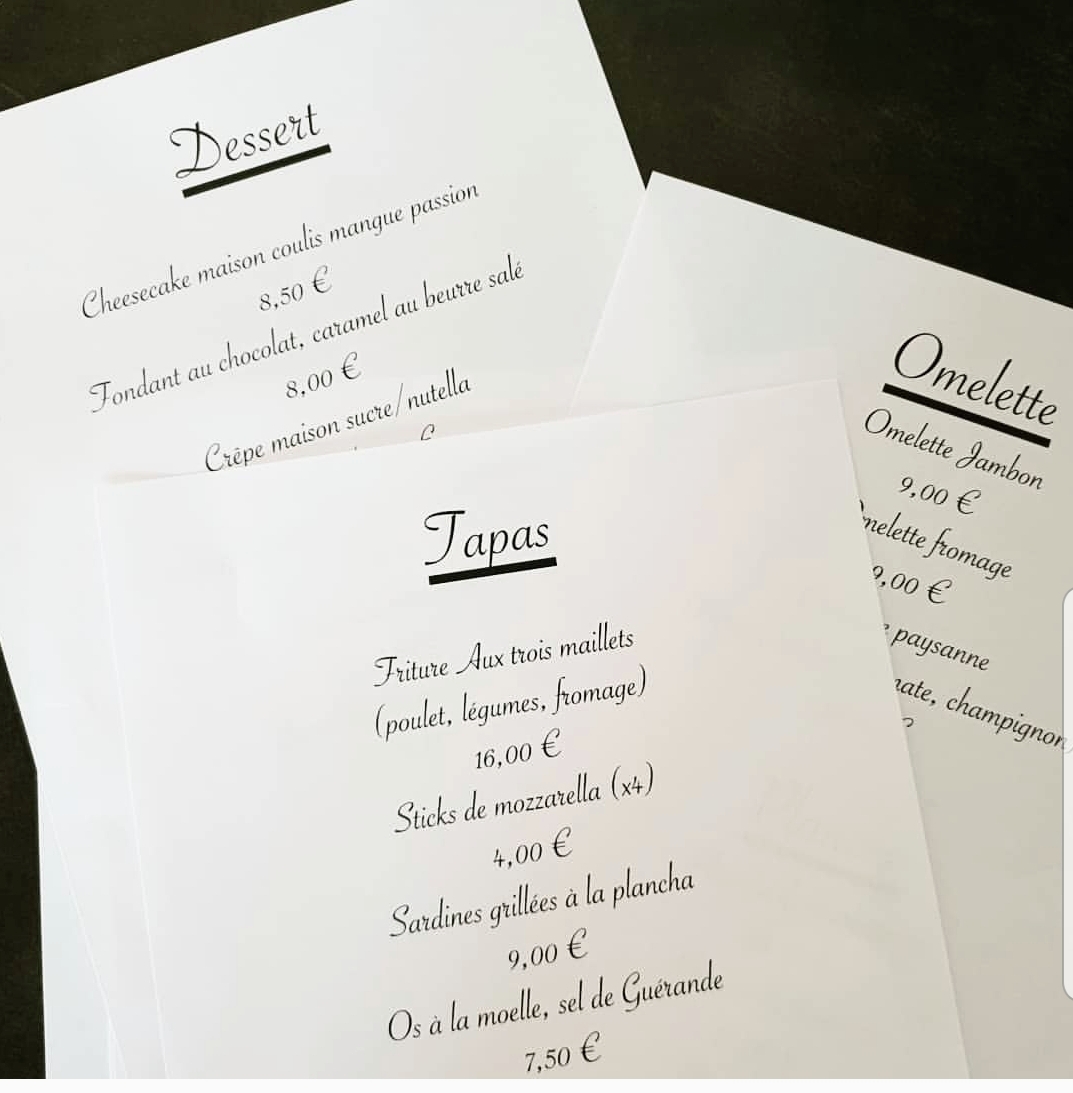 Dessert
Cheesecake maison coulis mangue passion
8,50 €
Fondant au chocolat, caramel au beurre salé
8,00 €
Crêpe maison sucre/nutella
Omelette
Omelette Jambon
9,00 €
melette fromage
9,00 €
paysanne
mate, champignon
Tapas
Friture Aux trois maillets
(poulet, légumes, fromage)
16,00 €
Sticks de mozzarella (x4)
4,00 €
Sardines grillées à la plancha
9,00 €
Os à la moelle, sel de Guérande
7,50 €